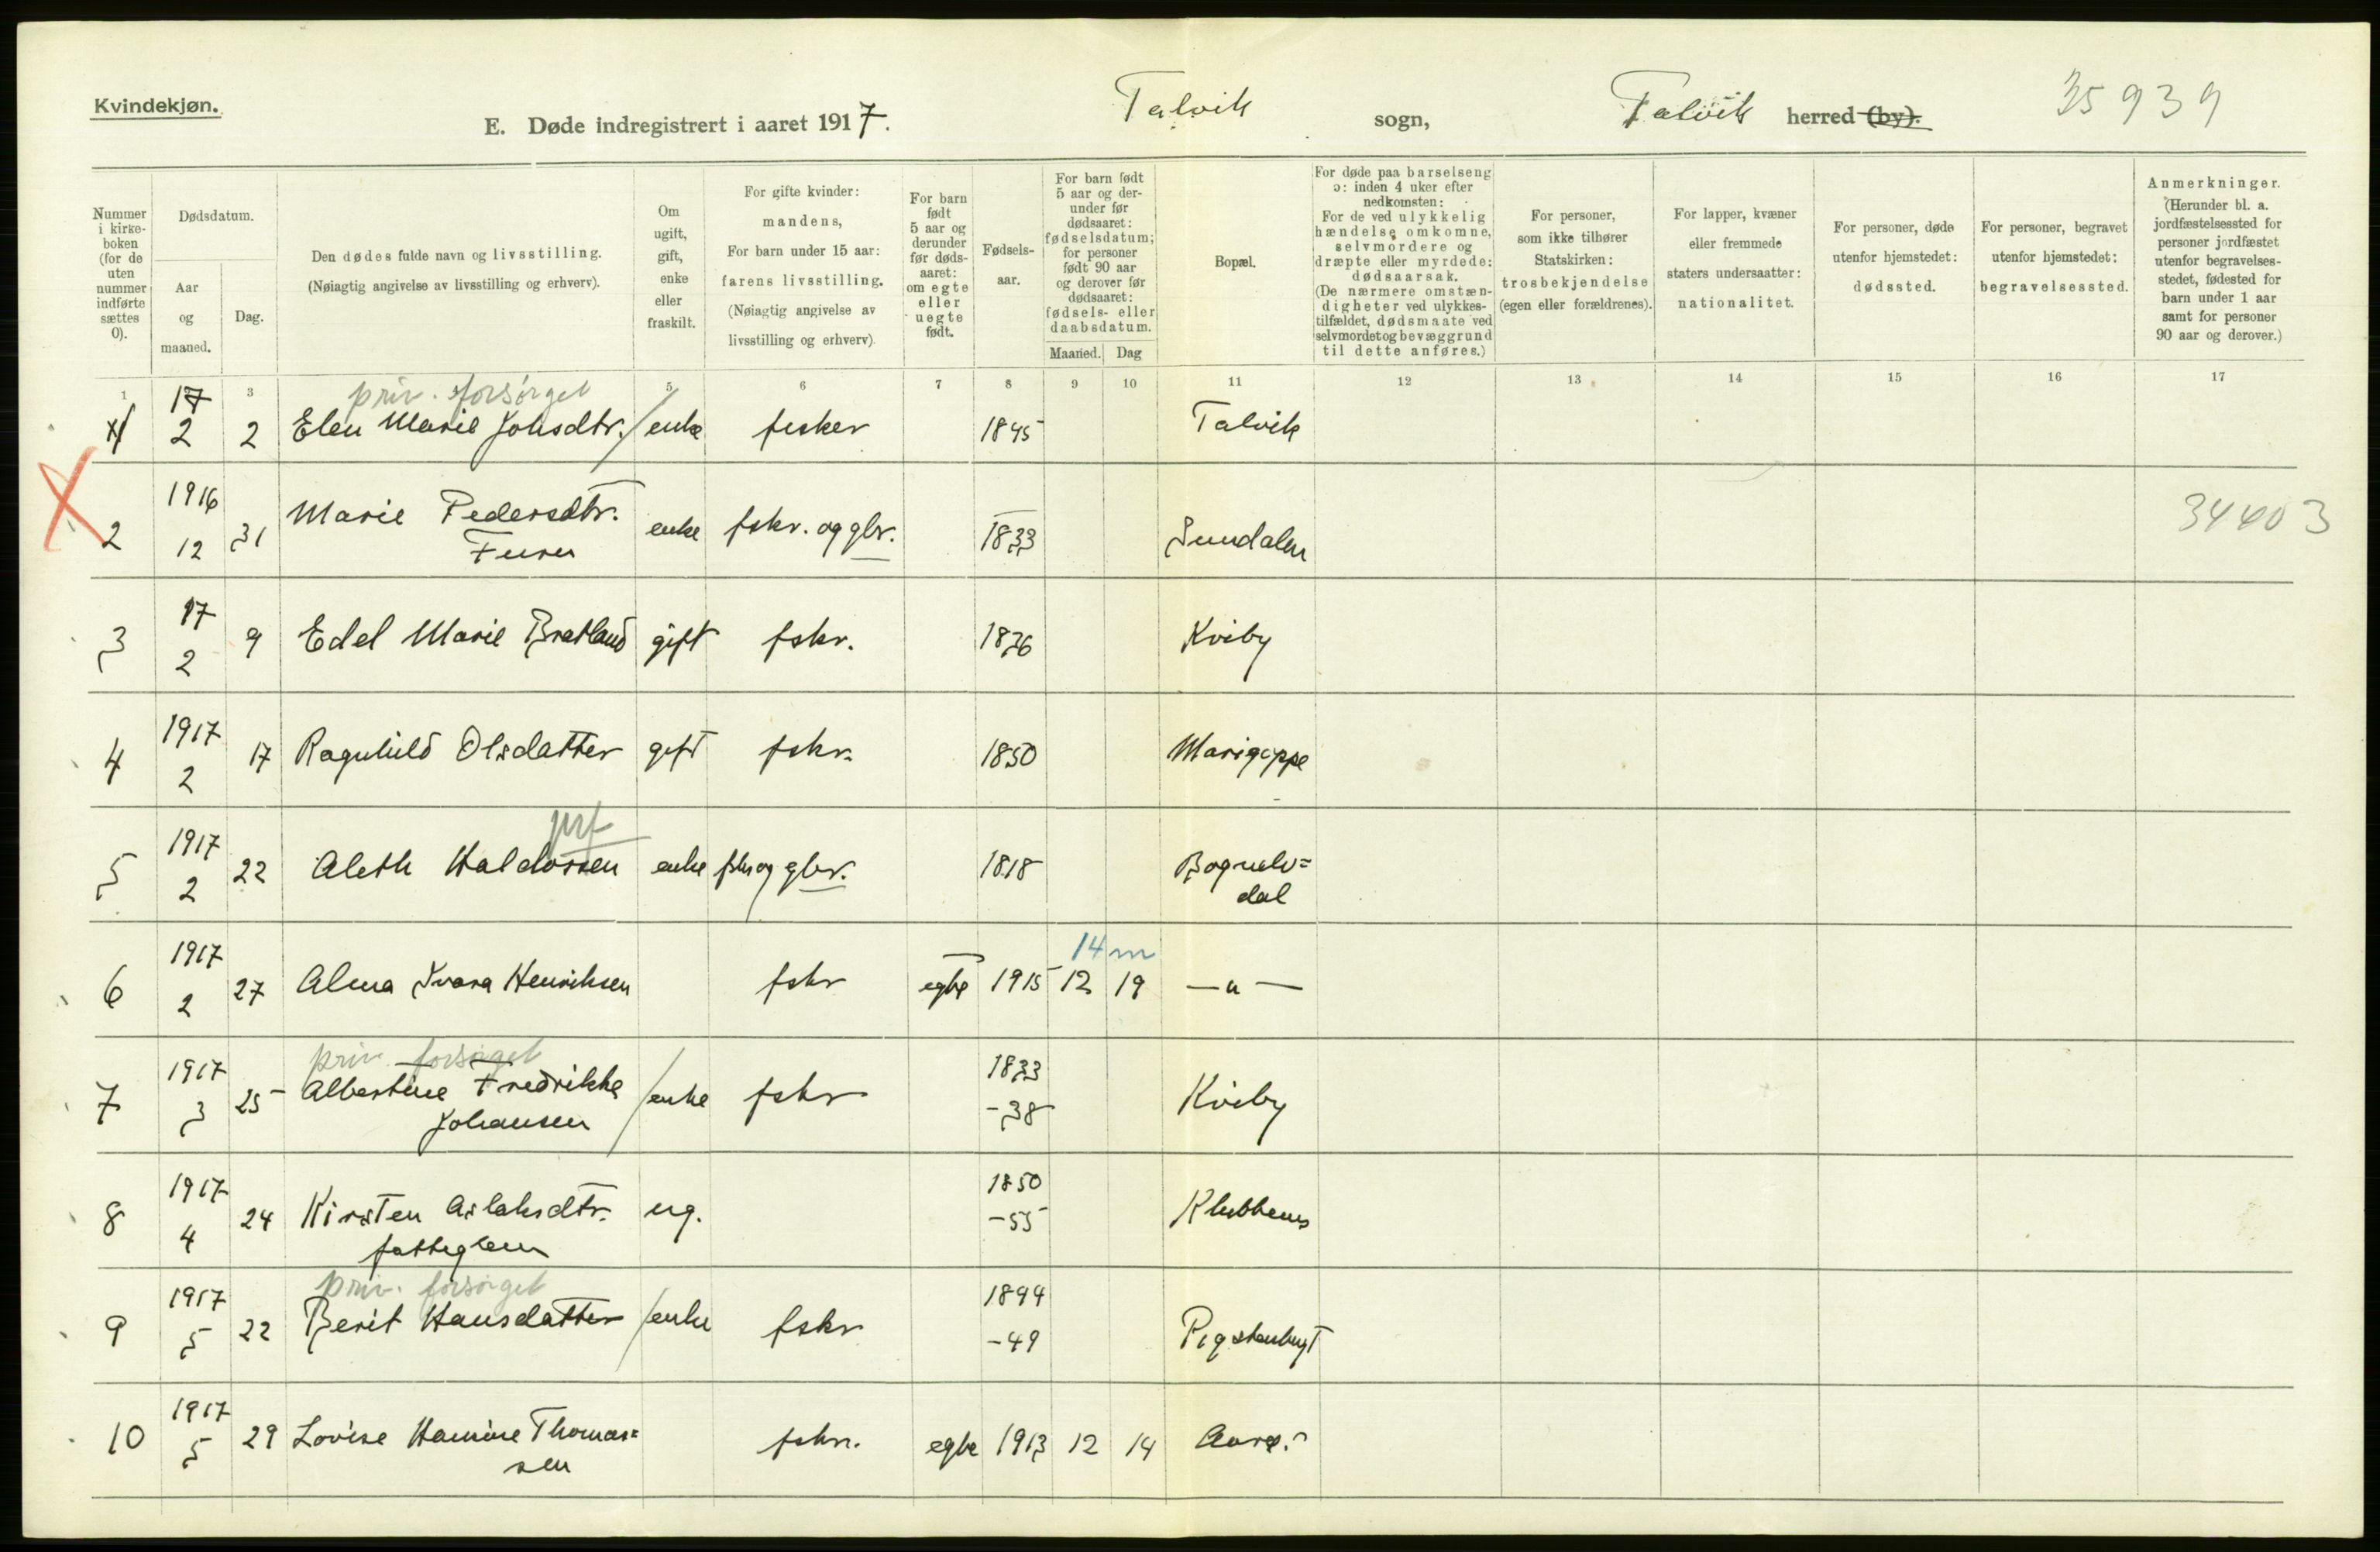 Kvindekjøn.
E. Døde indregistrert i aaret 1917.
Talvik sogn,
Talvik herred (by).
35939
Nummer i kirke-boken (for de uten nummer indførte sættes 0).
Dødsdatum.
Aar og maaned.
Dag.
Den dødes fulde navn og livsstilling.
(Nøiagtig angivelse av livsstilling og erhverv).
Om ugift, gift, enke eller fraskilt.
For gifte kvinder: mandens,
For barn under 15 aar: farens livsstilling.
(Nøiagtig angivelse av livsstilling og erhverv)
For barn født 5 aar og derunder før døds-aaret: om egte eller uegte født.
Fødsels-aar.
For barn født 5 aar og der-under før dødsaaret: fødselsdatum; for personer født 90 aar og derover før dødsaaret: fødsels- eller daabsdatum.
Maaned. Dag
Bopæl.
For døde paa barselseng ɔ: inden 4 uker efter nedkomsten:
For de ved ulykkelig hændelse omkomne, selvmordere og dræpte eller myrdede: dødsaarsak.
(De nærmere omstæn-digheter ved ulykkes-tilfældet, dødsmaate ved selvmordet og bevæggrund til dette anføres.)
For personer, som ikke tilhører Statskirken: trosbekjendelse (egen eller forældrenes).
For lapper, kvæner eller fremmede staters undersaatter: nationalitet.
For personer, døde utenfor hjemstedet: dødssted.
For personer, begravet utenfor hjemstedet: begravelsessted.
Anmerkninger.
(Herunder bl. a. jordfæstelsessted for personer jordfæstet utenfor begravelses-stedet, fødested for barn under 1 aar samt for personer 90 aar og derover.)
1 3 5 6 7 8 9 10 11 12 13 14 15 16 17
priv. forsørget
17 2 2 Elen Marie Johsdtr. enke fisker 1845 Talvik
2 1916 12 31 Marie Pedersdtr. Furu enke fskr. og gbr. 1833 Sundalen 34403
3 17 2 9 Edel Marie Bratland gift fskr. 1876 Kviby
4 1917 2 17 Ragnhild Olsdatter gift fskr. 1850 Marigeppe
5 1917 2 22 Aleth Haldorsen enke fskr og gbr. 1818 Bognelv=dal
14 m
6 1917 2 27 Alma Ivara Henriksen fskr egte 1915 12 19 — " —
priv. forsørget
7 1917 3 25 Albertine Fredrikke Johansen enke fskr 1833 -38 Kviby
8 1917 4 24 Kirsten Aslaksdtr. fattiglem ug. 1850 -55 Klubbenes
priv. forsørget
9 1917 5 22 Berit Hansdatter enke fskr 1844 -49 Pigstenbugt
10 1917 5 29 Lovise Hamine Thomas=sen fskr. egte 1913 12 14